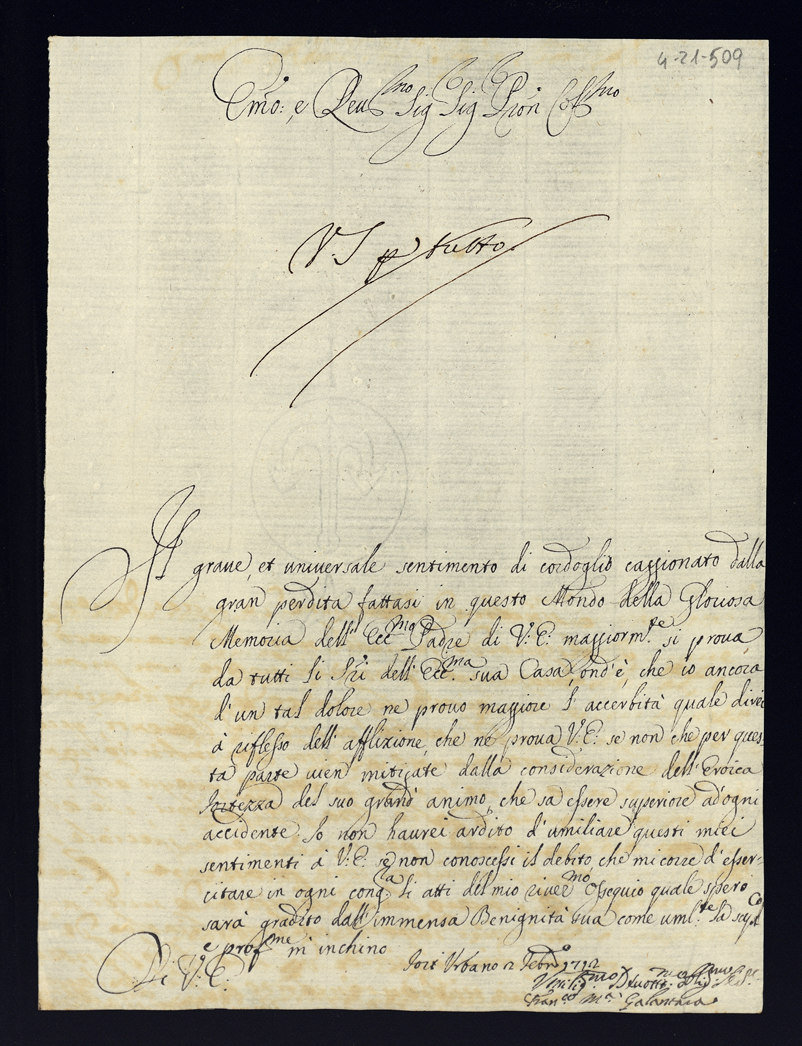 4-21-509
Emo: e Reumo Sig Sig Pron Colmo
V. S p tutto
Il graue, et uniuersale sentimento di cordoglio caggionato dalla
gran perdita fattasi in questo Mondo della Gloriosa
Memoria dell' Eccma Padre di V: E: maggiorm.te si proua
da tutti li Sri dell' Ecc.ma sua Casa, ond'è, che io ancora
d'un tal dolore ne prouo maggiore l'accerbità quale direi
à riflesso dell' afflizione, che ne proua V: E: se non che per ques
ta parte uien' mitigate dalla considerazione dell' Eroica
Fortezza del suo grand' animo, che sa essere superiore ad'ogni
accidente. Io non haurei ardito d'umiliare questi miei
sentimenti à V: E: se non conoscessi il debito che mi corre d'esser=
citare in ogni cong.a li atti del mio riuermo Ossequio quale spero
sarà gradito dall' immensa Benignità sua come uml.te la
e profme m'inchino
Di V: E:
Fort Urbano 2 Febro 1712
Vmilismo Deuotmo
Franco Ma Galantara